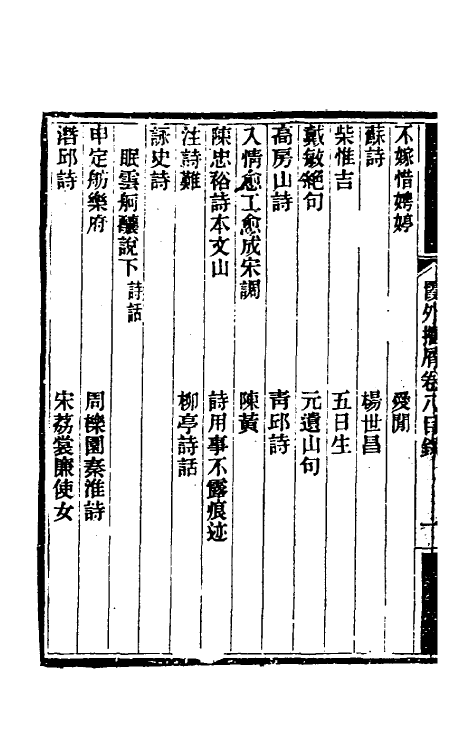 霞外攟屑卷八目錄
不嫁惜娉婷　愛閒
蘇詩　楊世昌
柴惟吉　五日生
戴敏絕句　元遺山句
高房山詩　青邱詩
入情愈工愈成宋調　陳黃
陳忠裕詩本文山　詩用事不露痕迹
注詩難　柳亭詩話
詠史詩
眠雲舸釀說下詩話
申定舫樂府　周櫟園秦淮詩
潛邱詩　宋荔裳廉使女